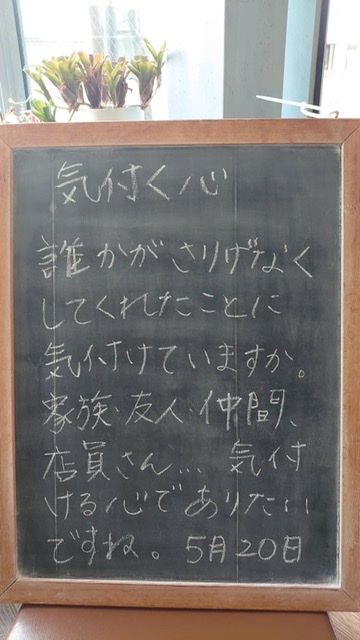 気付く心
誰かがさりげなく
してくれたことに
気付けていますか。
家族・友人・仲間、
店員さん… 気付
ける心でありたい
ですね。5月20日